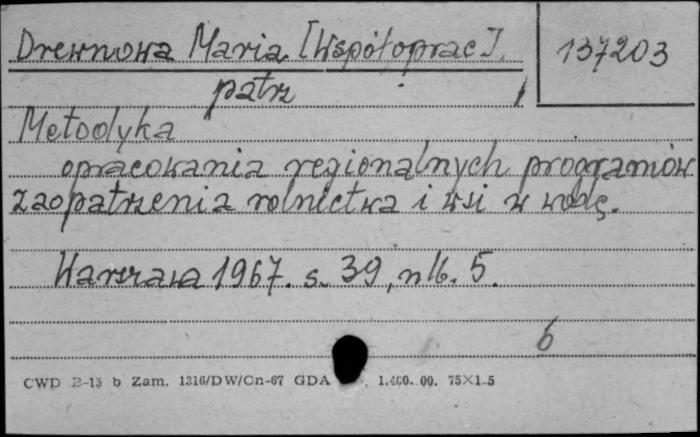 Drewnowa Maria [Współoprac].
137203
patrz
Metodyka
opracowania regionalnych programów
zaopatrzenia rolnictwa i wsi w wodę.
Warszawa 1967. s. 39, nlb. 5.
6
CWD B-13 b Zam. 1316/DW/Cn-67 GDA
75X1